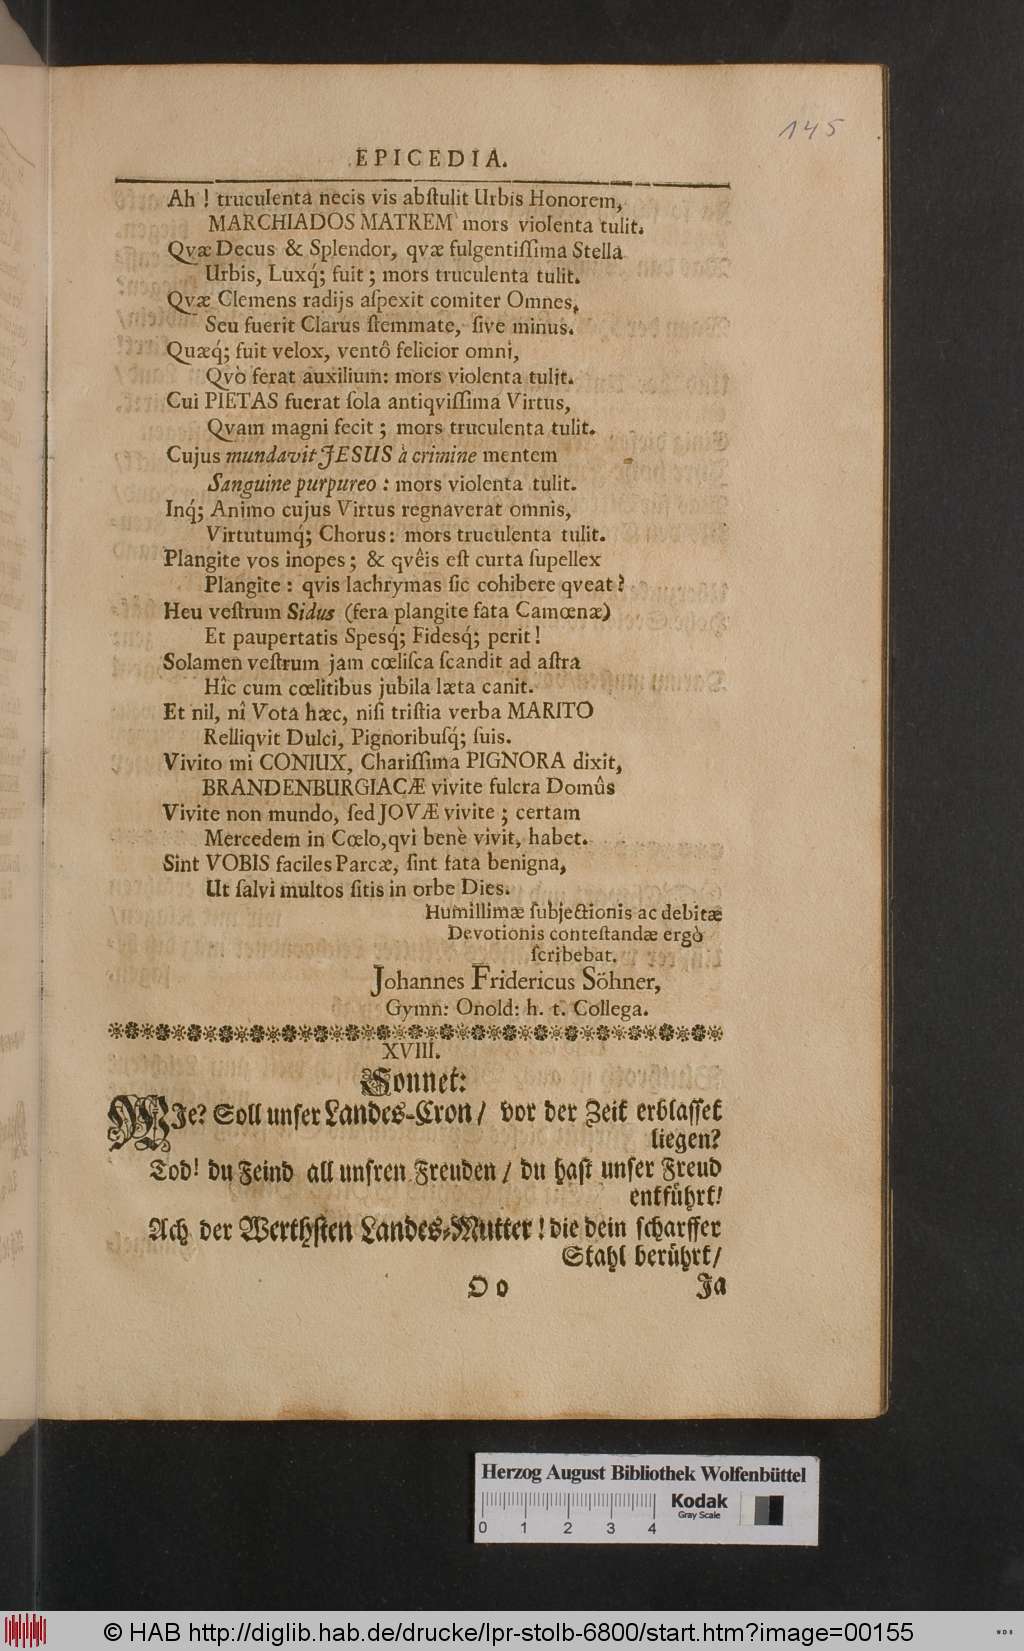 145
EPICEDIA.
Ah ! truculenta necis vis abſtulit Urbis Honorem,
MARCHIADOS MATREM mors violenta tulit.
Qvæ Decus & Splendor, qvæ fulgentiſſima Stella
Urbis, Luxq́; fuit ; mors truculenta tulit.
Qvæ Clemens radijs aſpexit comiter Omnes,
Seu fuerit Clarus ſtemmate, ſive minus.
Quæq́; fuit velox, ventô felicior omni,
Qvò ferat auxilium: mors violenta tulit.
Cui PIETAS fuerat ſola antiqviſſima Virtus,
Qvam magni fecit ; mors truculenta tulit.
Cujus mundavit JESUS à crimine mentem
Sanguine purpureo : mors violenta tulit.
Inq́; Animo cujus Virtus regnaverat omnis,
Virtutumq́; Chorus: mors truculenta tulit.
Plangite vos inopes ; & qvêis eſt curta ſupellex
Plangite : qvis lachrymas ſic cohibere qveat ?
Heu veſtrum Sidus (fera plangite fata Camœnæ)
Et paupertatis Spesq́; Fidesq́; perit !
Solamen veſtrum jam cœliſca ſcandit ad aſtra
Hîc cum cœlitibus jubila læta canit.
Et nil, nî Vota hæc, niſi triſtia verba MARITO
Relliqvit Dulci, Pignoribuſq́; ſuis.
Vivito mi CONIUX, Chariſſima PIGNORA dixit,
BRANDENBURGIACÆ vivite fulcra Domûs
Vivite non mundo, ſed JOVÆ vivite ; certam
Mercedem in Cœlo, qvi benè vivit, habet.
Sint VOBIS faciles Parcæ, ſint fata benigna,
Ut ſalvi multos ſitis in orbe Dies.
Humillimæ ſubjectionis ac debitæ
Devotionis conteſtandæ ergò
ſcribebat.
Johannes Fridericus Söhner,
Gymn: Onold: h. t. Collega.
XVIII.
Sonnet:
WJe? Soll unſer Landes-Cron / vor der Zeit erblaſſet
liegen?
Tod! du Feind all unſren Freuden / du haſt unſer Freud
entführt!
Ach der Werthſten Landes-Mutter ! die dein ſcharffer
Stahl berührt /
O o Ja
Herzog August Bibliothek Wolfenbüttel
Kodak
Gray Scale
0 1 2 3 4
© HAB http://diglib.hab.de/drucke/lpr-stolb-6800/start.htm?image=00155
WDB